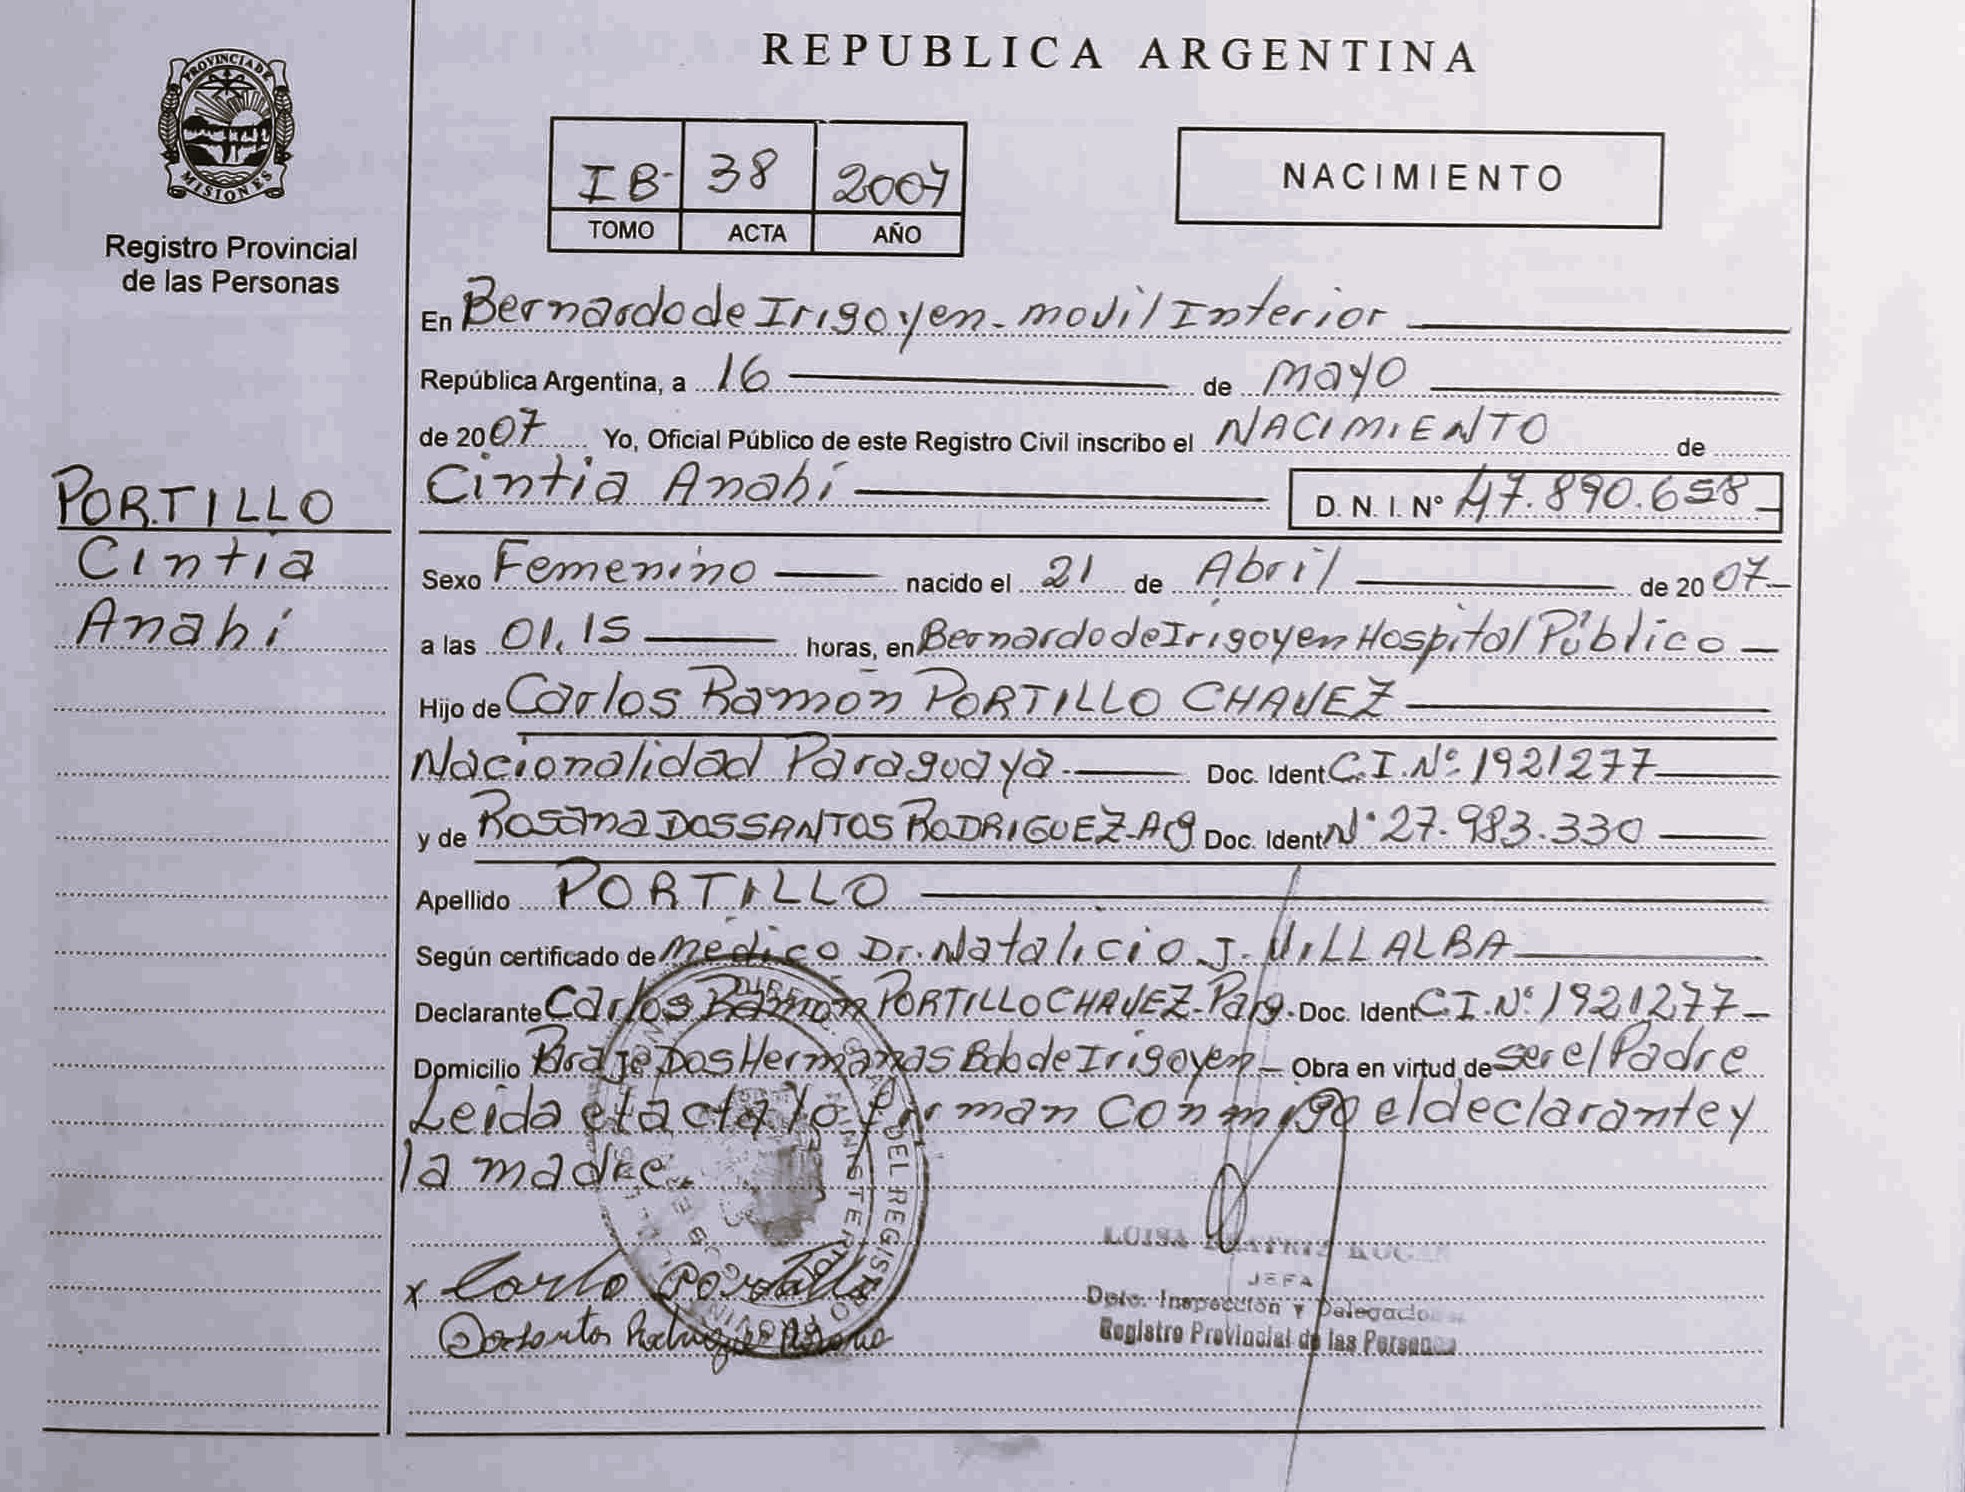 REPUBLICA ARGENTINA
PROVINCIA DE MISIONES
Registro Provincial
de las Personas
IB- 38 2007
TOMO ACTA AÑO
NACIMIENTO
En Bernardo de Irigoyen - movil Interior
República Argentina, a 16 de mayo
de 2007 Yo, Oficial Público de este Registro Civil inscribo el NACIMIENTO de
PORTILLO
Cintia
Anahí
Cintia Anahí D. N. I. Nº 47.890.658
Sexo Femenino nacido el 21 de Abril de 2007
a las 01,15 horas, en Bernardo de Irigoyen Hospital Público
Hijo de Carlos Ramón PORTILLO CHAVEZ
Nacionalidad Paraguaya Doc. Ident C.I.Nº 1921277
y de Rosana DOSSANTOS RODRIGUEZ-Arg Doc. Ident Nº 27.983.330
Apellido PORTILLO
Según certificado de médico Dr. Natalicio J. VILLALBA
Declarante Carlos Ramón PORTILLO CHAVEZ-Parg. Doc. Ident C.I.Nº 1921277
Domicilio Dos Hermanas Bdo de Irigoyen Obra en virtud de ser el Padre
Leida el acta lo firman conmigo el declarante y
la madre.
x Carlo Portillo
Dossantos Rodriguez Rosana
LUISA BEATRIZ
JEFA
Dpto. Inspección y
Registro Provincial de las Personas